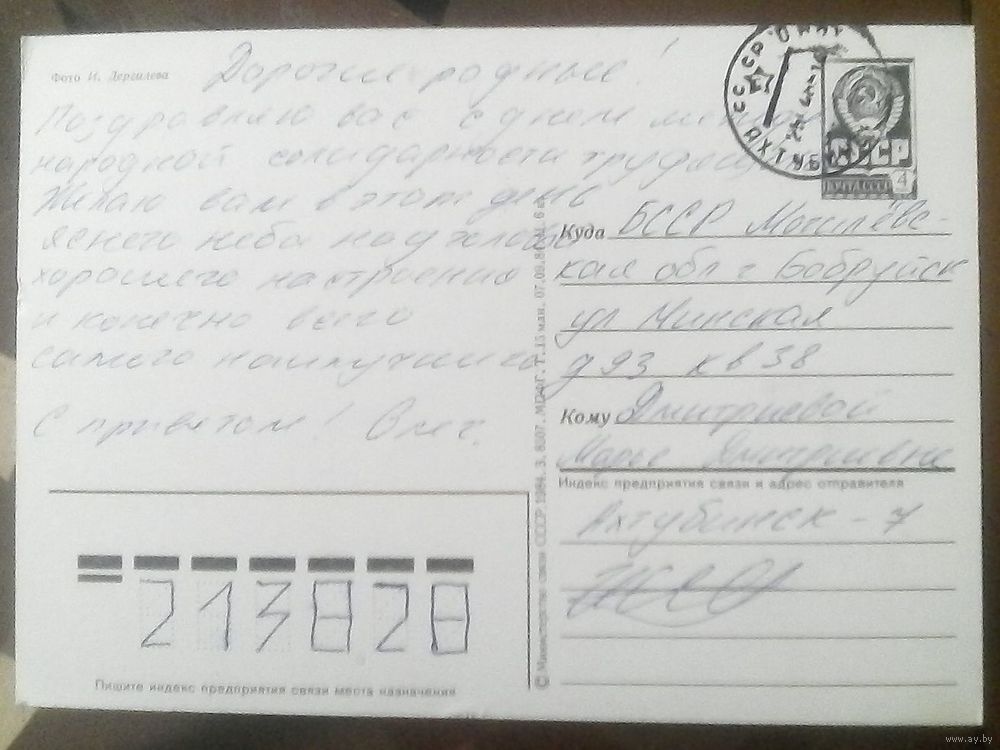 Фото И. Дергилева
Дорогие родные!
Поздравляю вас с днем между
народной солидарности трудящ
Желаю вам в этот день
ясного неба над головой
хорошего настроения
и конечно всего
самого наилучшего
С приветом! Олег.
СССР
ПОЧТА СССР
4
АХТУБ
Куда БССР Могилёвс-
кая обл г Бобруйск
ул Минская
д 93 кв 38
Кому Дмитриевой
Марье Дмитриевне
Индекс предприятия связи и адрес отправителя
Ахтубинск-7
213828
Пишите индекс предприятия связи места назначения
© Министерство связи СССР 1984. З. 8507. МПФГ. Т. 15 млн. 07.09.84
www.ay.by